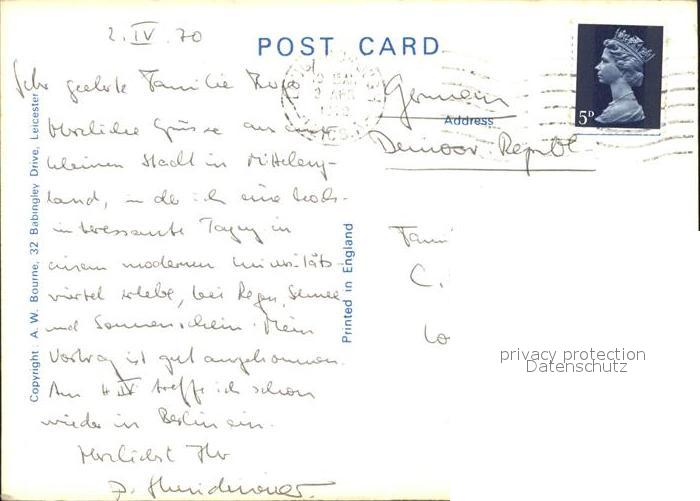 2.IV.70
POST CARD
5D
Sehr geehrte Familie
Germain
Address
Herzliche Grüsse aus einer
Democr. Republ.
kleinen Stadt in Mitteleng-
land, in der ich eine hoch-
interessante Tagung in
einem modernen Universitäts-
viertel erlebe, bei Regen, Schnee
und Sonnenschein. Mein
Vortrag ist gut angekommen.
Am 4.IV treffe ich schon
wieder in Berlin ein.
Herzlichst Ihr
Fam
C.
Copyright: A. W. Bourne, 32 Babingley Drive, Leicester
Printed in England
privacy protection
Datenschutz